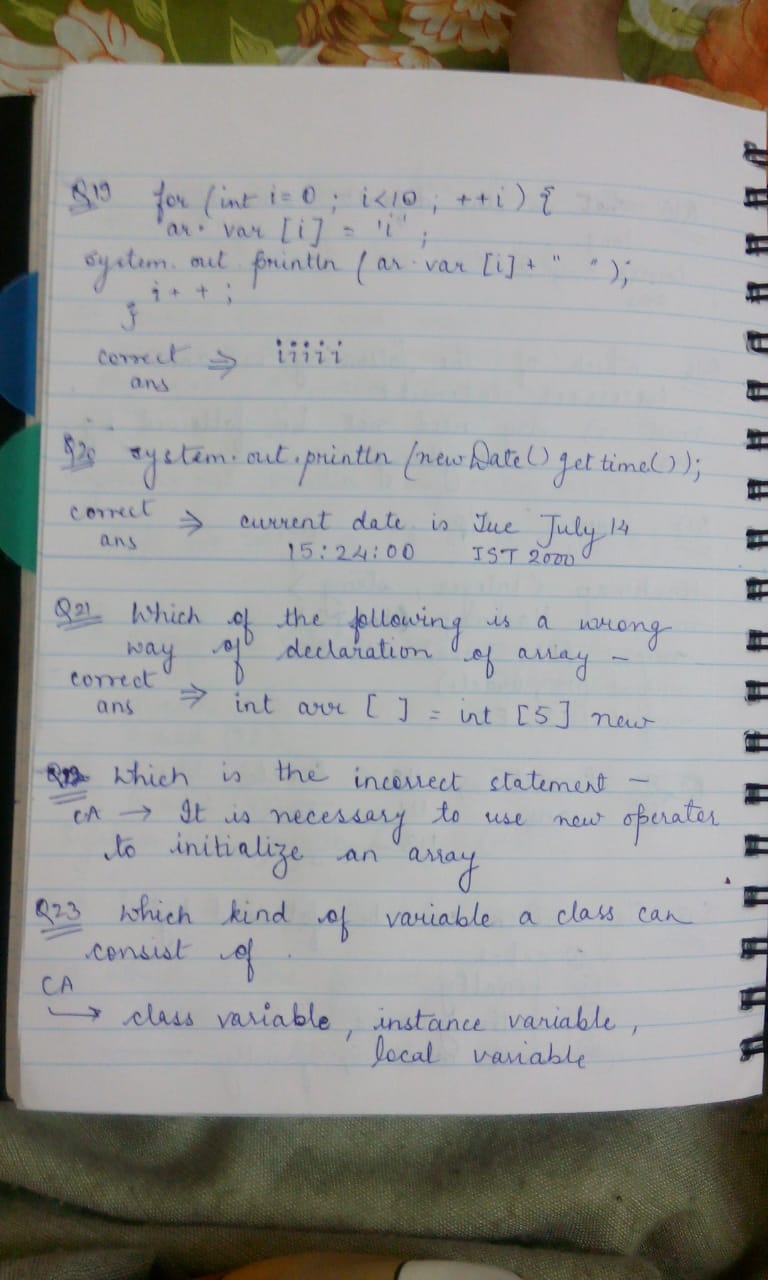 Q19 for (int i=0 ; i<10 ; ++i) {
ar. var [i] = 'i' ;
system. out println (ar. var [i] + " " );
i++ ;
}
correct ⇒ iiiii
ans
Q20 system.out.println (newDate() get time());
correct ⇒ current date is Tue July 14
ans 15:24:00 IST 2000
Q21 Which of the following is a wrong
way of declaration of array –
correct ⇒ int arr [ ] = int [5] new
ans
Q22 Which is the incorrect statement –
CA → It is necessary to use new operator
to initialize an array
Q23 Which kind of variable a class can
consist of .
CA
→ class variable, instance variable,
local variable